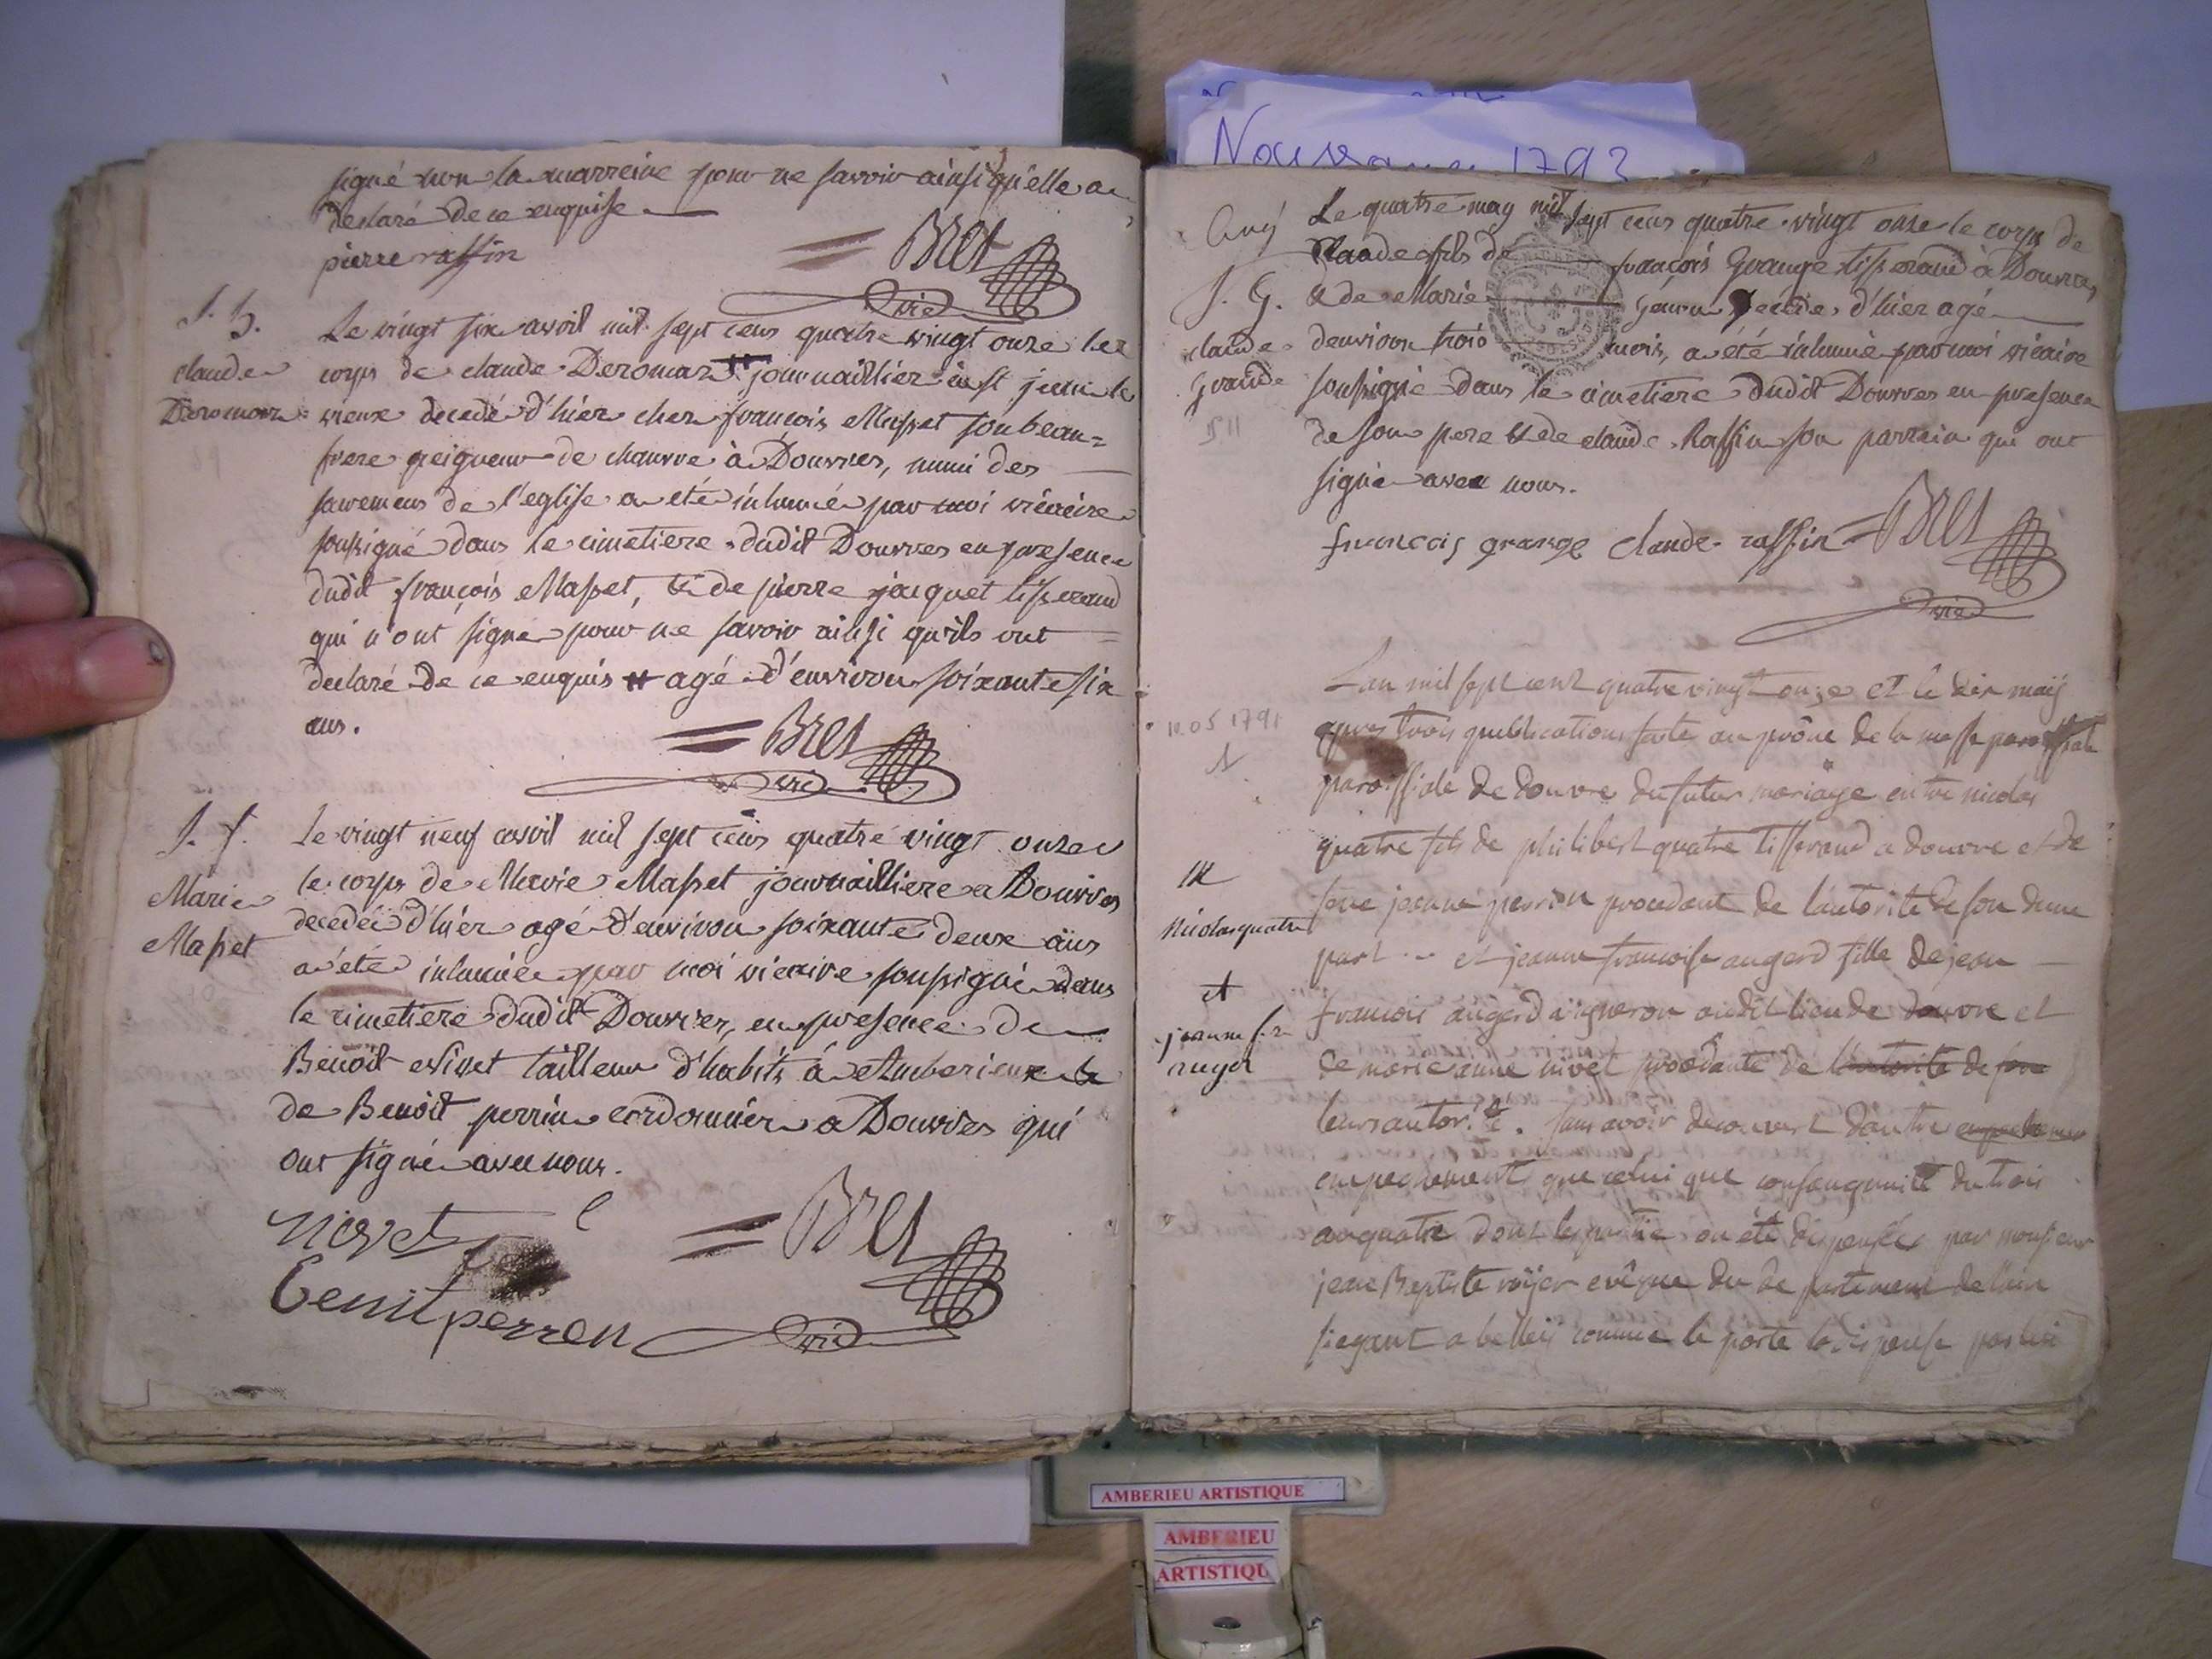 signé non la marreine pour ne savoir ainsi qu'elle a
declaré de ce enquise
pierre raffin
Bret
vic
S. h.
claude
Deromaz
Le vingt six avril mil sept cens quatre vingt onze le
corps de claude Deromaz journaillier à st jean le
vieux decedé d'hier chez françois Masset son beau=
frere peigneur de chanvre à Douvres, muni des
sacremens de l'eglise a eté inhumé par moi vicaire
soussigné dans le cimetiere dudit Douvres en presence
dudit françois Masset, & de pierre jacquet tisserand
qui n'ont signé pour ne savoir ainsi qu'ils ont
declaré de ce enquis agé d'environ soixante six
ans.
Bret
vic
S. f.
Marie
Masset
Le vingt neuf avril mil sept cens quatre vingt onze
le corps de Marie Masset journailliere a Douvres
decedée d'hier agé d'environ soixante deux ans
a été inhumée par moi vicaire soussigné dans
le cimetiere dudit Douvres, en presence de
Benoit Nivet tailleur d'habits à Amberieux &
de Benoit perrin cordonnier a Douvres qui
ont signé avec nous.
nivet
Benit perren
Bret
vic
1793
S. G.
claude
Grange
Le quatre may mil sept cens quatre vingt onze le corps de
Claude fils de françois Grange tisserand à Douvres
& de Marie decedé d'hier agé
d'environ trois mois, a été inhumé par moi vicaire
soussigné dans le cimetiere dudit Douvres en presence
de son pere & de claude Raffin son parrain qui ont
signé avec nous.
françois grange claude raffin Bret
vic
10.05 1791
M
nicolas quatre
et
jeanne f.se
auger
L'an mil sept cent quatre vingt onze et le dix maij
apres trois publications faite au prône de la messe
paroissiale de douvre du futur mariage entre nicolas
quatre fils de philibert quatre tisserand a douvre et de
feue jeanne perrin procedant de l'autorite de son dune
part et jeanne francoise augerd fille de jean
francois augerd vigneron audit lieu de douvre et
de marie anne nivet procédante de l'autorite de
leurs autorité. sans avoir decouvert dautre
empechement que celui que consanguinité du trois
au quatre dont les partie on été dispensées par monsieur
jean Baptiste roijer evêque du departement de l'ain
siegant a belleij comme le porte la dispense par lui
AMBERIEU ARTISTIQUE
AMBERIEU
ARTISTIQU